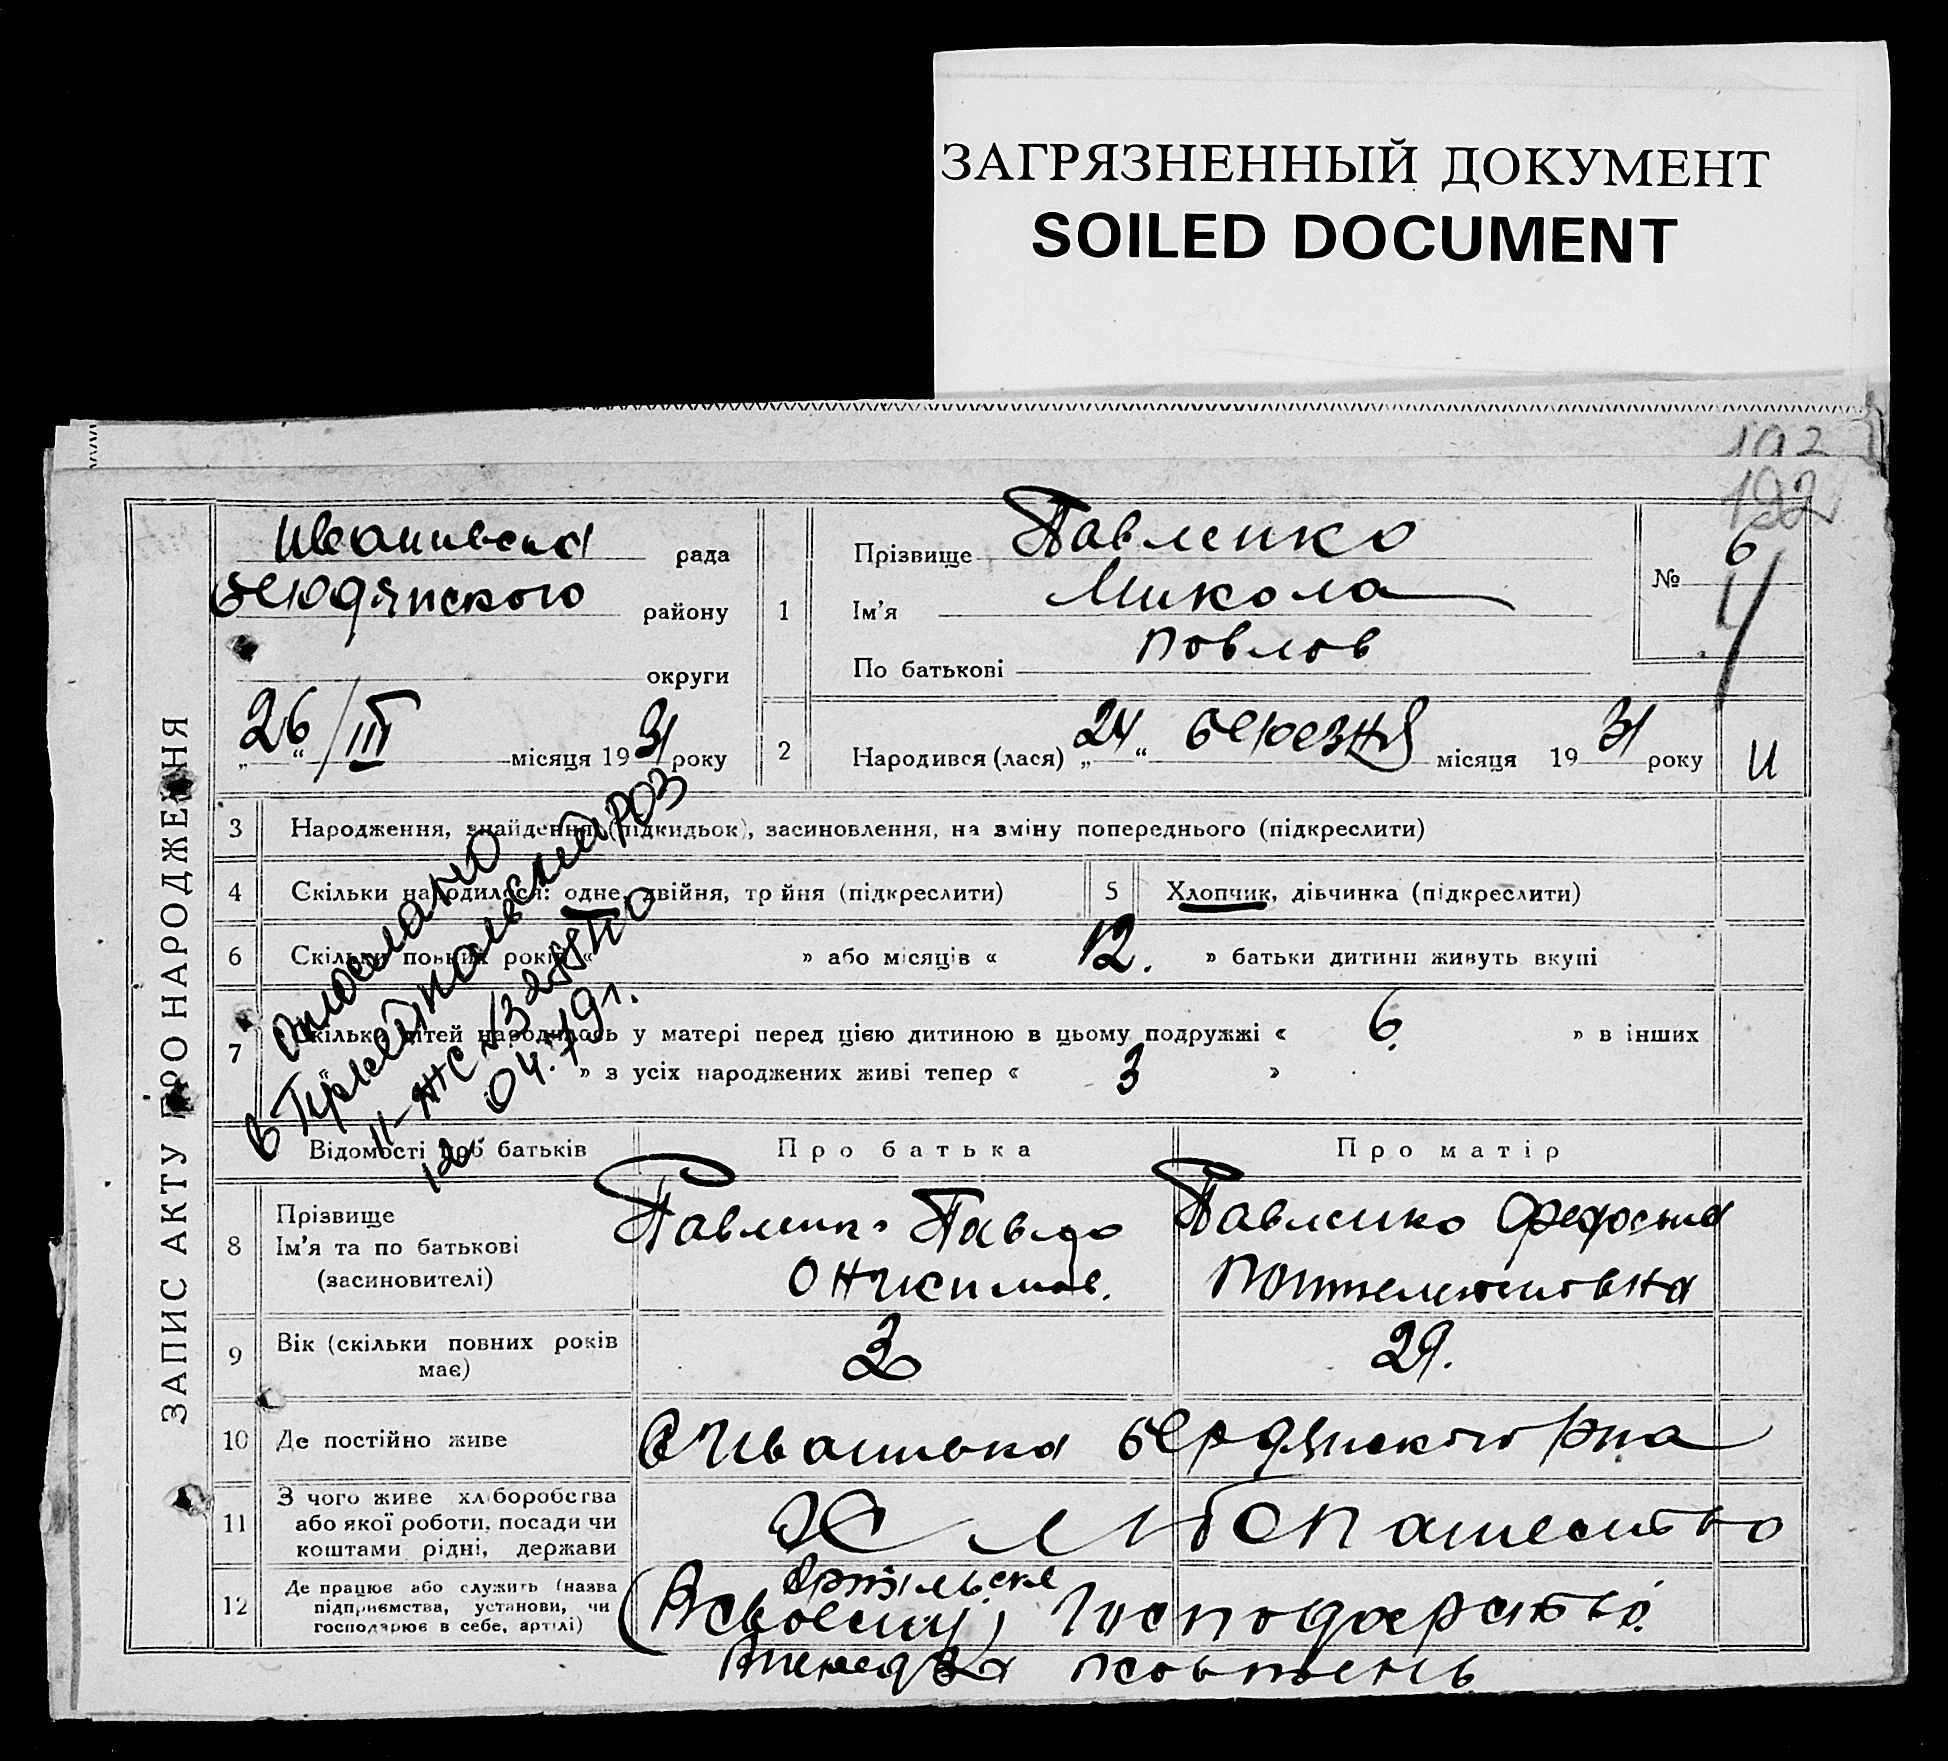 ЗАГРЯЗНЕННЫЙ ДОКУМЕНТ
SOILED DOCUMENT
192
192
ЗАПИС АКТУ ПРО НАРОДЖЕННЯ
Иванивська рада
Бердянского району
округи
26/III місяця 1931 року
1
Прізвище Павленко
Ім'я Микола
По батькові Повлов
№ 6
4
2
Народився (лася) „24“ березня місяця 1931 року
И
3 Народження, знайдення (підкидьок), засиновлення, на зміну попереднього (підкреслити)
4 Скільки народилося: одне, двійня, трійня (підкреслити)
5 Хлопчик, дівчинка (підкреслити)
6 Скільки повних років « » або місяців « 12. » батьки дитини живуть вкупі
7 Скільки дітей народилось у матері перед цією дитиною в цьому подружжі « 6. » в інших
» з усіх народжених живі тепер « 3 »
04.79г.
Відомості про батьків
Про батька
Про матір
8 Прізвище
Ім'я та по батькові
(засиновителі)
Павленко Павло
Онисимов.
Павленко Феодосия
9 Вік (скільки повних років
має)
29.
10 Де постійно живе
Бердянского рна
11 З чого живе хліборобства
або якої роботи, посади чи
коштами рідні, держави
Хлибопашество
12 Де працює або служить (назва
підприємства, установи, чи
господарює в себе, артілі)
Артільске
(В своему) Господарстві
жовтень